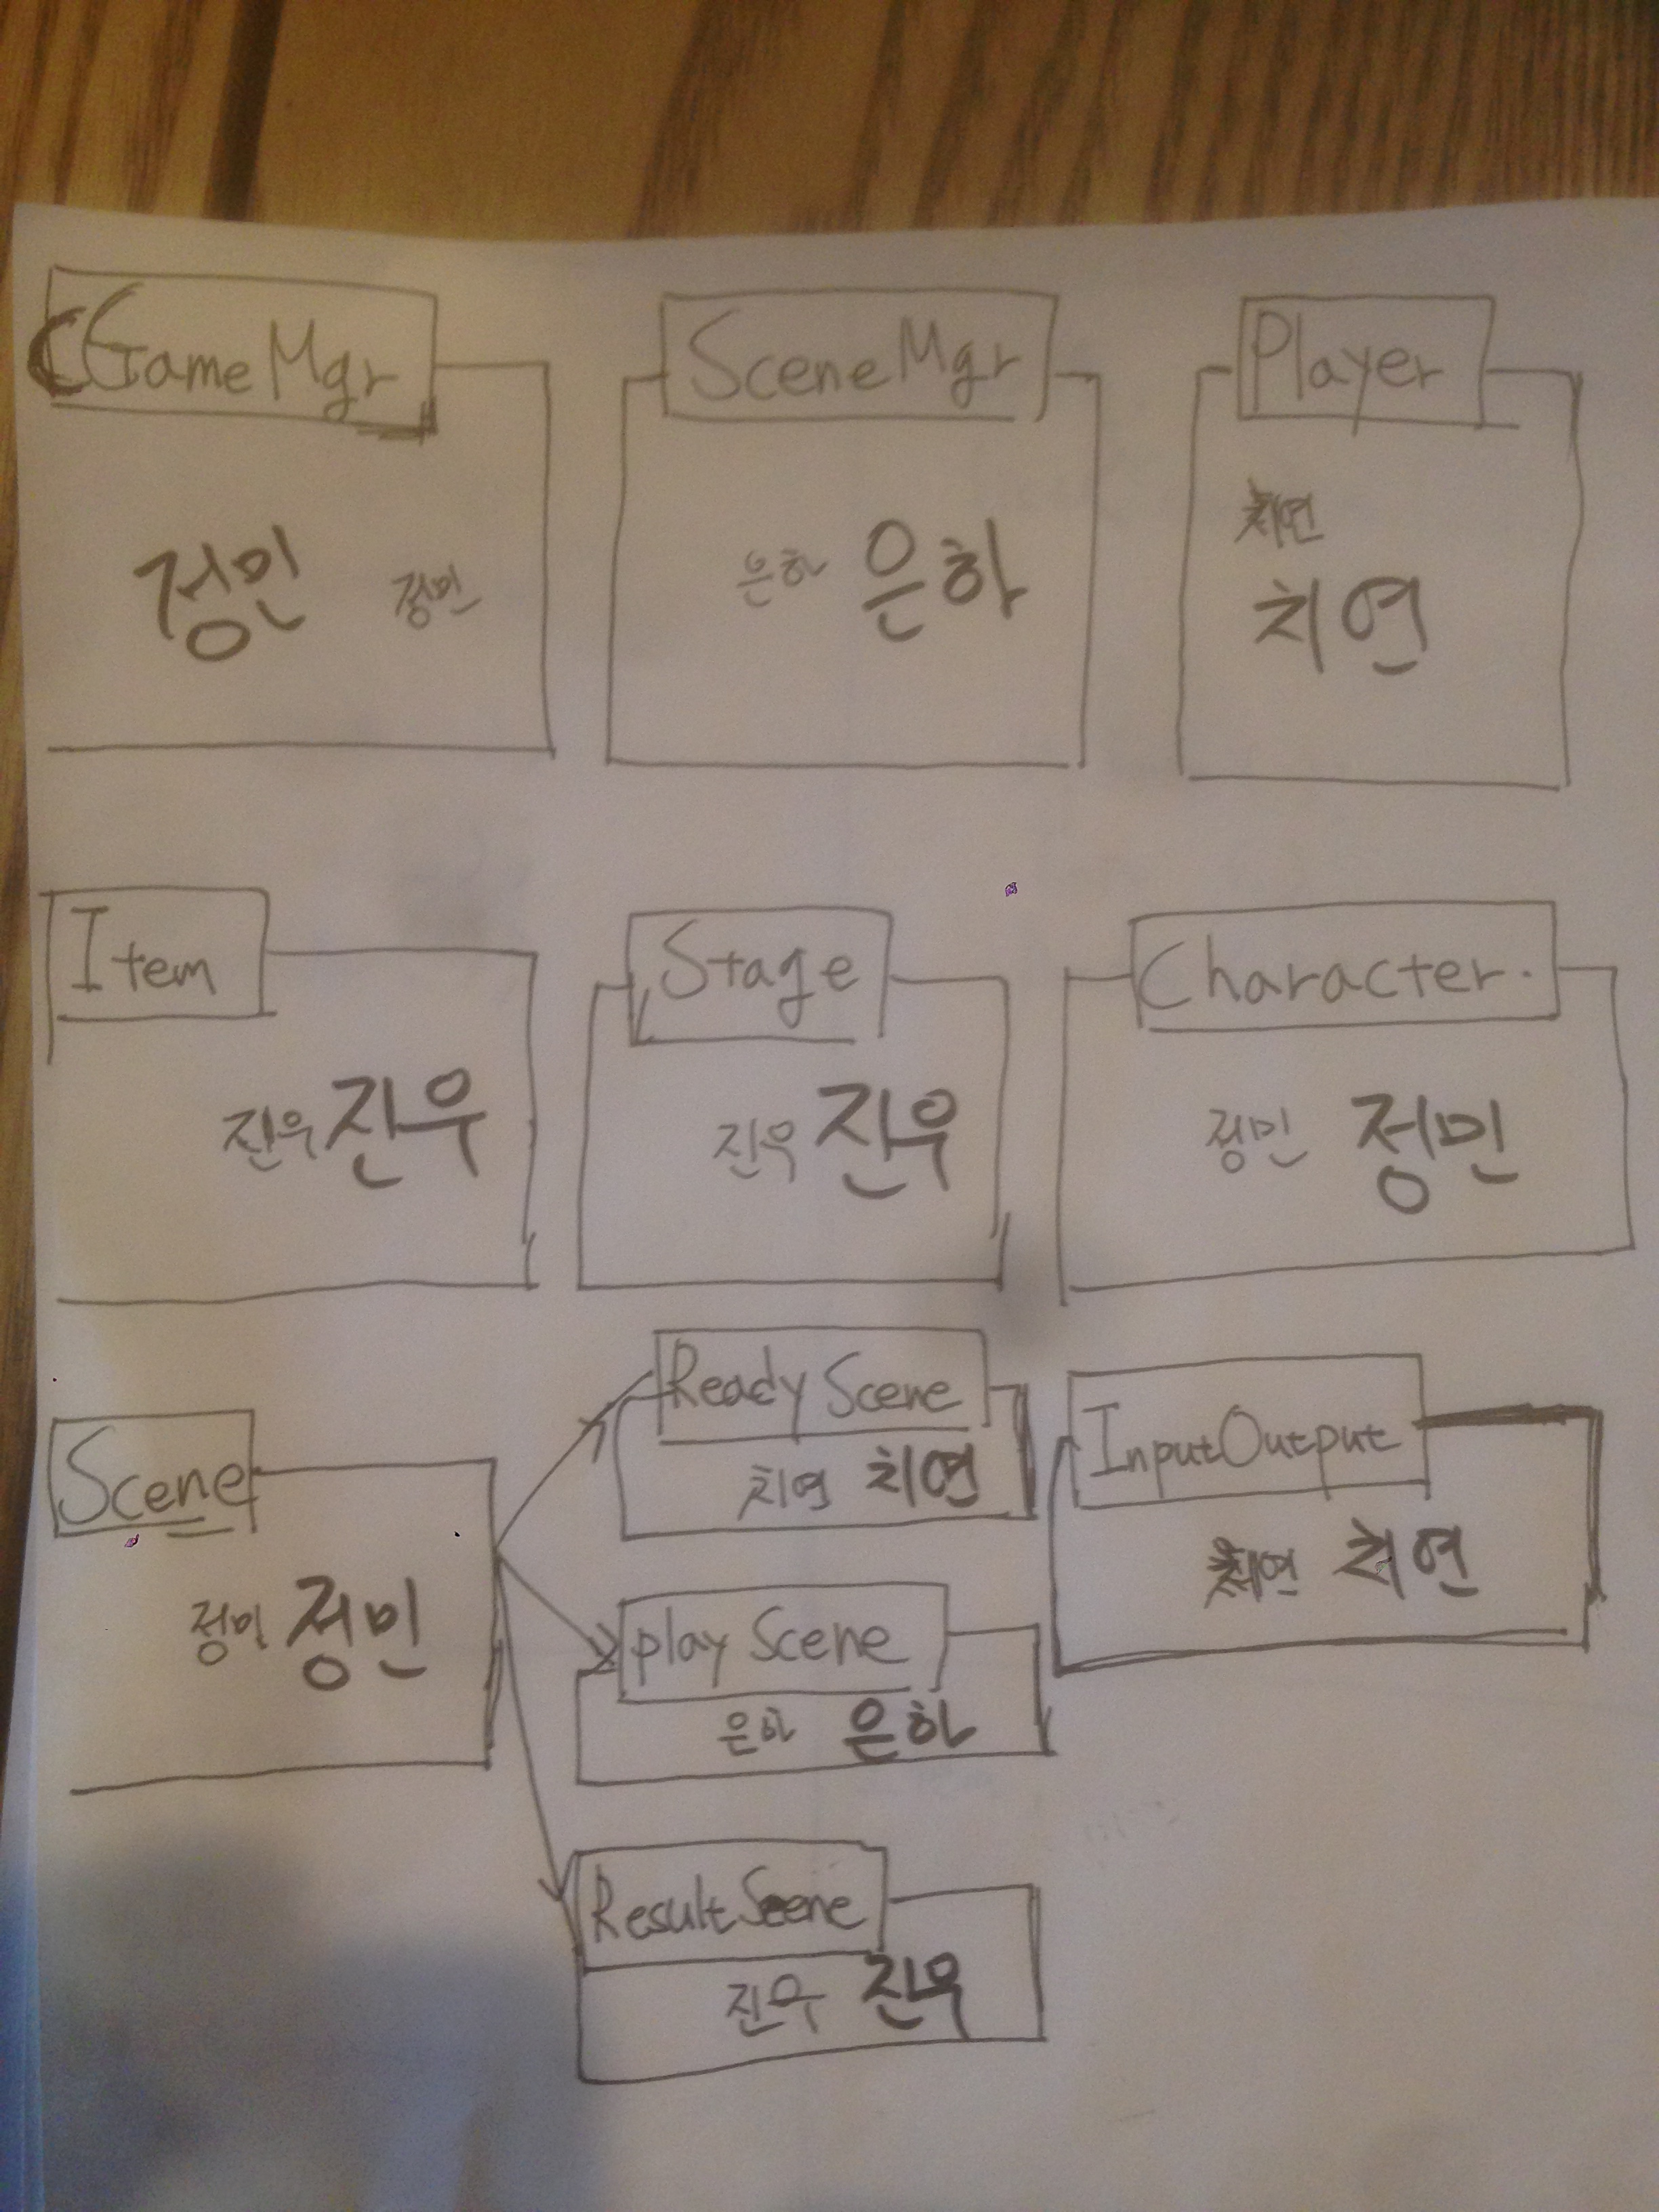 CGameMgr
정민 정민
SceneMgr
은하 은하
Player
치연
치연
Item
진우 진우
Stage
진우 진우
Character.
정민 정민
Scene
정민 정민
Ready Scene
치연 치연
play Scene
은하 은하
Result Scene
진우 진우
InputOutput
치연 치연